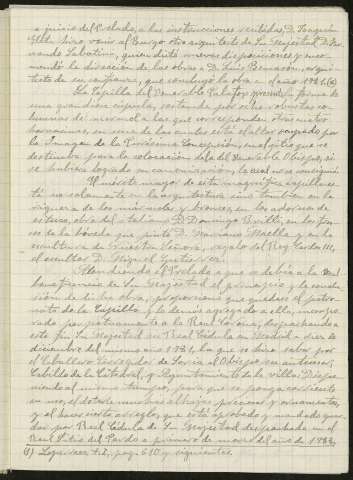 a juicio del Prelado, a las instrucciones vertidas, D. Joaquin
Elta hizo venir al Burgo otro arquitecto de Su Magestad D. Fer-
nando Sabatini, quien dictó nuevas disposiciones y reco-
mendó la dirección de las obras a D. Luis Bernasconi, arqui-
tecto de su confianza, que concluyó la obra el año 1781(1)
La Capilla del Venerable Palafox presenta la forma de
una grandiosa cúpula, sostenida por ocho robustas co-
lumnas de marmol a las que corresponden otras cuatro
hornacinas, en una de las cuales está el altar ocupado por
la Imagen de la Purísima Concepción, en el sitio que se
destinaba para la colocación del Venerable Obispo, si
se hubiera logrado su canonización, la cual no se consiguió
El mérito mayor de esta magnífica capilla es-
tá no solamente en la arquitectura sino tambien en la
riqueza de los mármoles y bronces, en los adornos de
estuco, obra del italiano D. Domingo Brilli, en los fres-
cos de la bóveda que pintó D. Mariano Maella y en la
escultura de Nuestra Señora, regalo del Rey Carlos III,
el escultor D. Miguel Gutierrez.
Atendiendo el Prelado a que se debia a la Real
beneficencia de Su Magestad el principio y la conclu-
sión de dicha obra, proporcionó que quedase el patro-
nato de la Capilla y lo demás agregado a ella, incorpo-
rado perpetuamente a la Real Corona, despachando a
este fin Su Magestad su Real Cédula en Madrid a diez de
diciembre del mismo año 1781, lo que se hizo saber por
el Caballero Corregidor de Soria al Obispo en su [...],
Cabildo de la Catedral, y Ayuntamiento de la villa. Dispo-
niendo al mismo tiempo, para que se ponga corriente
su uso, el dotarle muchas alhajas preciosas y ornamentos,
y al hacer cierto arreglo, que está aprobado y mandado guar-
dar por Real Cédula de Su Magestad despachada en el
Real Sitio del Pardo a primero de marzo del año de 1783.
(1) Loperraez, t. II, pag. 610 y siguientes.